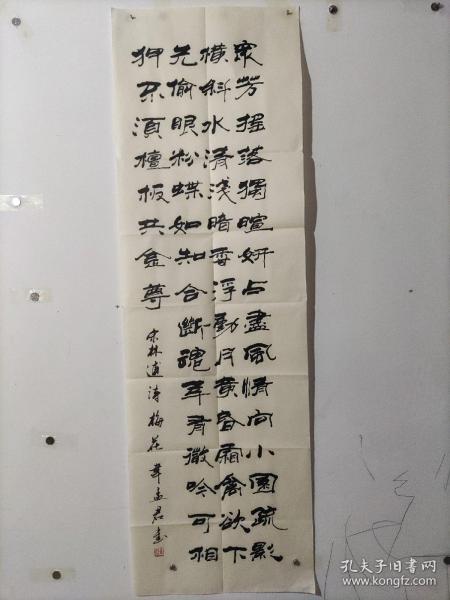 眾芳搖落獨暄妍占盡風情向小園疏影
橫斜水清淺暗香浮動月黃昏霜禽欲下
先偷眼粉蝶如知合斷魂幸有微吟可相
狎不須檀板共金尊
宋林逋詩梅花孟君書
孔夫子旧书网
www.kongfz.com